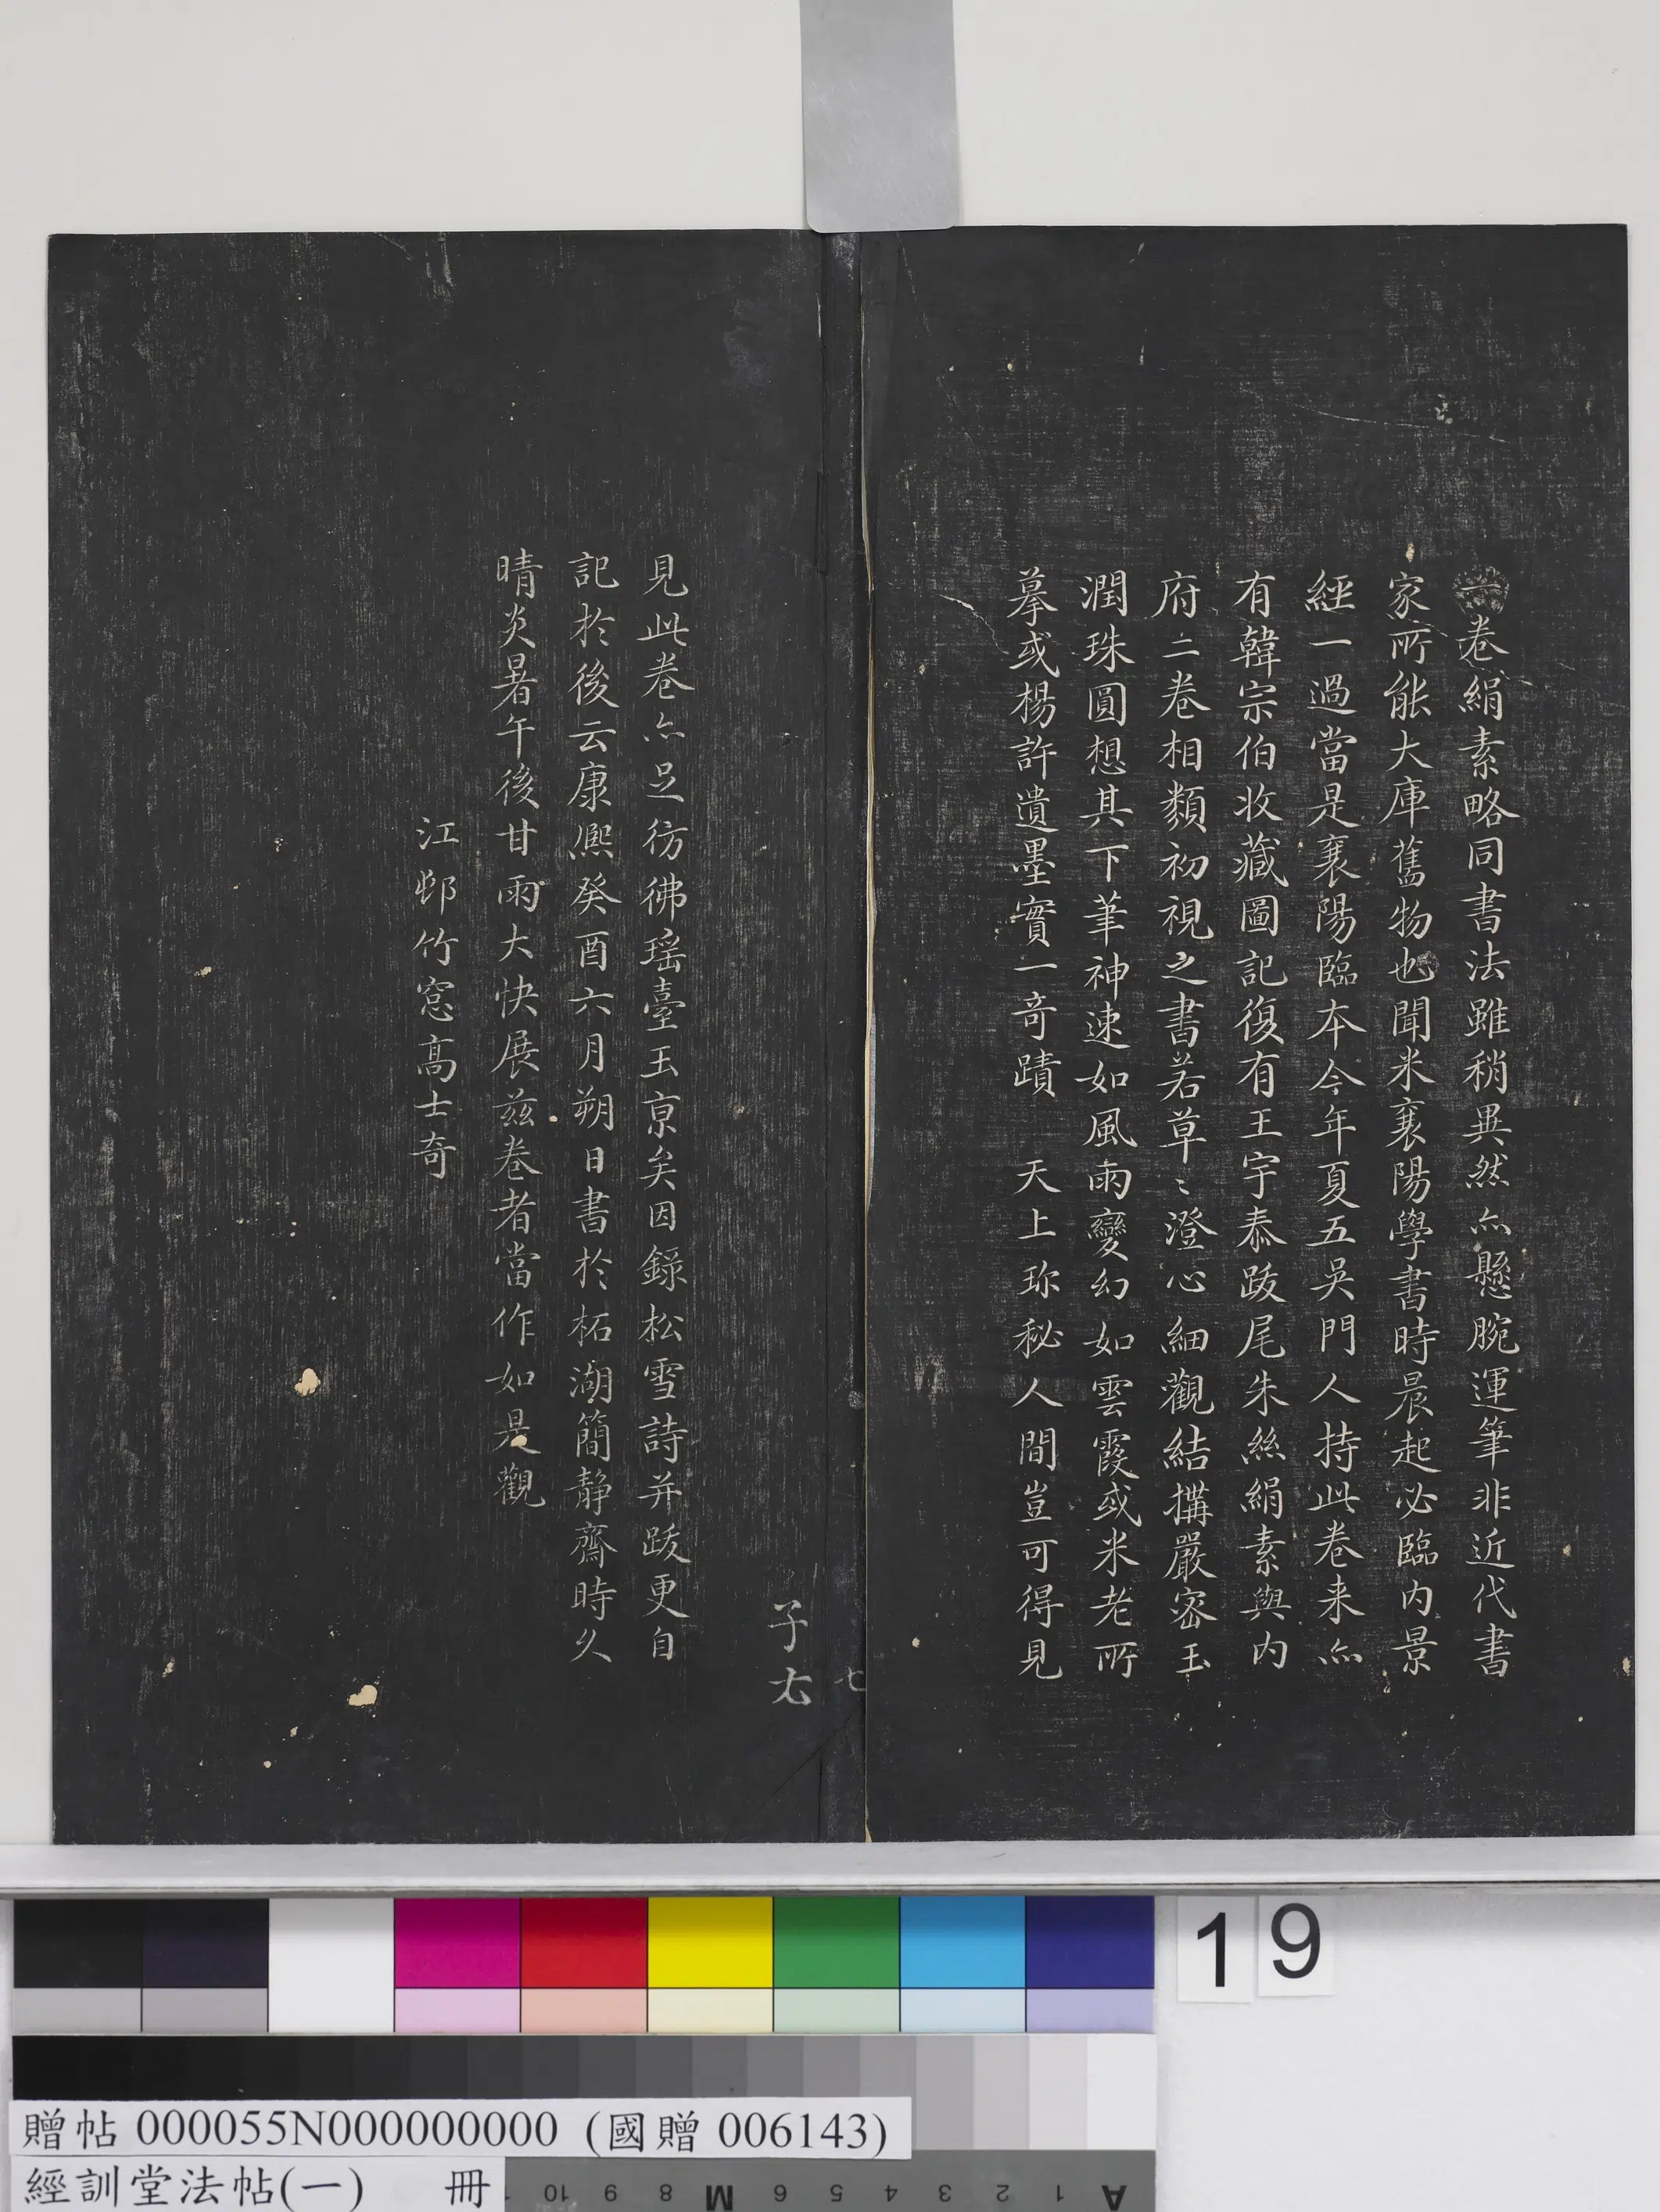 卷絹素略同書法雖稍異然亦懸腕運筆非近代書
家所能大庫舊物也聞米襄陽學書時晨起必臨內景
經一過當是襄陽臨本今年夏五吳門人持此卷来亦
有韓宗伯收藏圖記復有王宇泰跋尾朱絲絹素與內
府二卷相類初視之書若草〻澄心細觀結搆嚴密玉
潤珠圓想其下筆神速如風雨變幻如雲霞或米老所
摹或楊許遺墨實一奇蹟 天上珎秘人間豈可得見
七
子右
見此卷亦足彷彿瑶臺玉京矣因錄松雪詩并跋更自
記於後云康熈癸酉六月朔日書於柘湖簡静齋時久
晴炎暑午後甘雨大快展兹卷者當作如是觀
江邨竹窓高士奇
19
贈帖 000055N000000000 (國贈 006143)
經訓堂法帖(一) 冊
10 9 8 M 7 6 5 4 3 2 1 A